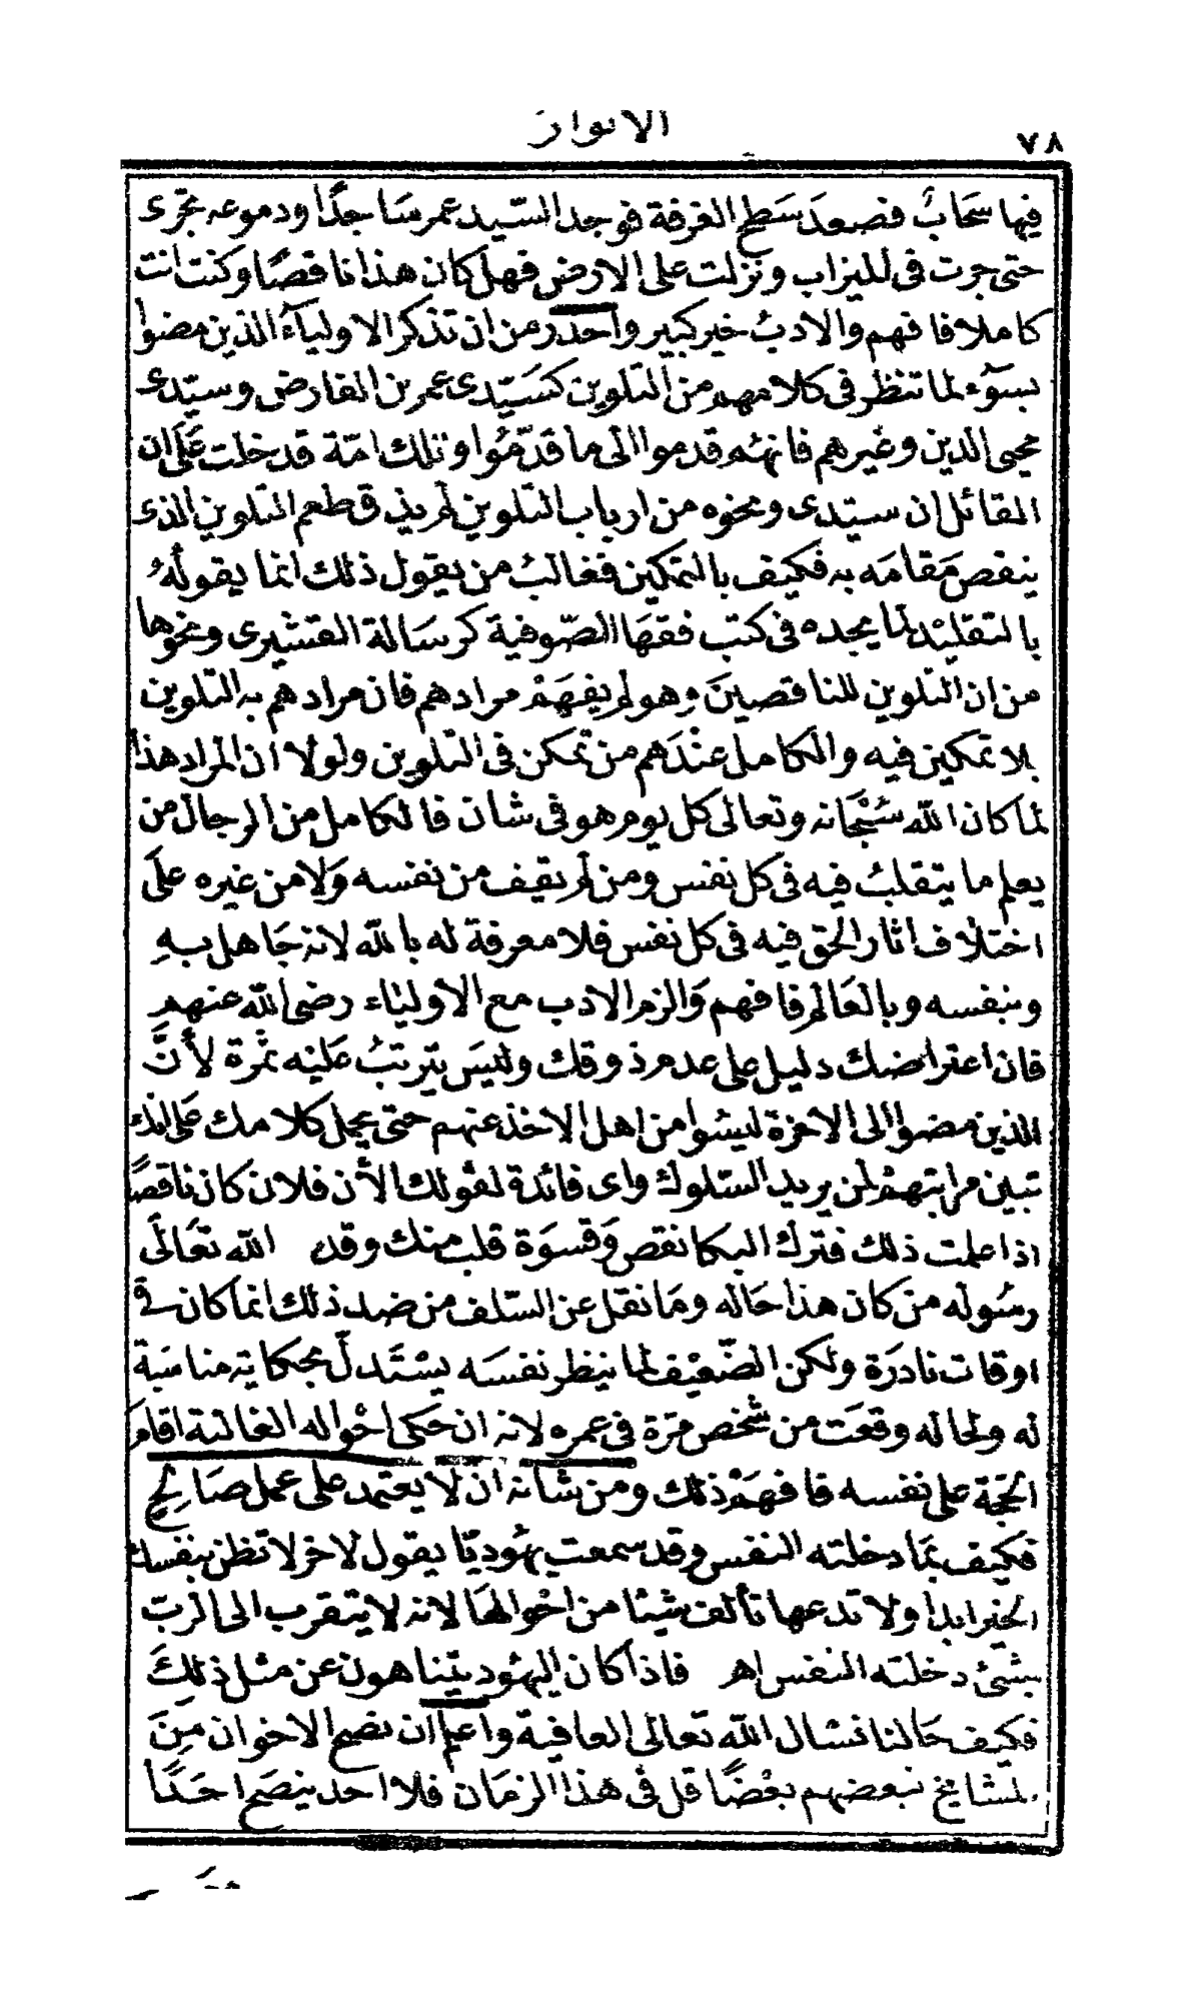 الانوار
٧٨
فيها سَحَابٌ فصعدَ سَطح الغرفة فوجد السّيد عمر سَاجدًا ودموعه تجرى
حتى جرت فى الميزاب ونزلت على الارض فهل كان هذا ناقصًا وكنت انت
كاملا فافهم والادبُ خير كبير واحذر من ان تذكر الاوليآءَ الذين مضوا
بسَوْء لما تنظر فى كلامهم من التلوين كسَيّدى عمر بن الفارض وسيّدى
محيى الدين وغيرهم فانهُم قدموا الى ما قدّمُوا وتلك امّة قد خلت عَلَى ان
القائل ان سيّدى ونحوه من ارباب التلوين لم يذق طعم التلوين الذى
ينقص مَقامَه به فكيف بالتمكين فغالبُ من يقول ذلك انما يقولُهُ
بالتقليْد لما يجده فى كتب فقهَا الصّوفية كرسَالة القشيرى ونحوها
من ان التلوين للناقصينَ وهو لم يفهَمْ مرادهم فان مرادهم به التلوين
بلا تمكين فيه والكامل عنْدَهم من تمكن فى التلوين ولولا ان المراد هذا
لما كان الله سُبْحَانه وتعالى كل يوم هو فى شان فالكامل من الرجال من
يعلم ما يتقلبُ فيه فى كل نفس ومن لم يقف من نفسه وَلا من غيره علَى
اختلاف اثار الحق فيه فى كل نفس فلا معرفة له بالله لانه جَاهل بهِ
وبنفسه وبالعَالم فافهم وَالزم الادب مع الاوليْاء رضى الله عنهم
فان اعتراضك دليل على عدم ذوقك وليْسَ يترتبُ عليْه ثمرة لأنَّ
الذين مضوا الى الاخرة ليسُوا من اهل الاخذ عنهم حتى يحمل كلامك عَلى انك
تبين مراتبهمْ لمن يريد السّلوك واى فائدة لقولك الأن فلان كان ناقصًا
اذا علمت ذلك فترك البكا نقص وَقسوَة قلب منك وقد الله تعَالَى
رسُوله من كان هذا حَاله ومَا نقل عن السّلف من ضد ذلك انما كان فى
اوقات نادرَة ولكن الضّعيْف لما ينظر نفسَه يسْتَدلّ بحكاية مناسَبة
له ولحاله وقعَت من شخص مرّة فى عمره لانه ان حَكى احْواله الغالبة اقام
الحجّة على نفسه فافهَمْ ذلك ومن شَانه ان لا يعتمد على عمل صَالِحٍ
فكيف بمَا دخلته النفس وقد سمعت يهُوديًا يقول لاخر لا تظن بنفسك
الخير ابدا ولا تدعها تألف شيئا من احْوالهَا لانه لا يتقرب الى الربّ
بشئ دخلته النفس اهـ فاذا كان اليهُود يتناهون عن مثل ذلِكَ
فكيف حَالنا نسْال الله تعالى العافية واعلم ان نصح الاخوان مِنَ
المشايخ لبعضهم بعْضًا قل فى هذا الزمَان فلا احد ينصَح احَدًا